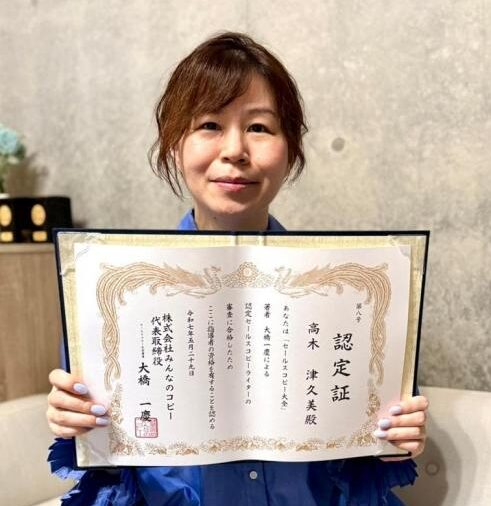 第八号
認定証
高木 津久美殿
あなたは「セールスコピー大全」
著者 大橋一慶による
認定セールスコピーライターの
審査に合格したため
ここに指導者の資格を有することを認める
令和七年五月二十九日
株式会社みんなのコピー
代表取締役
大橋 一慶